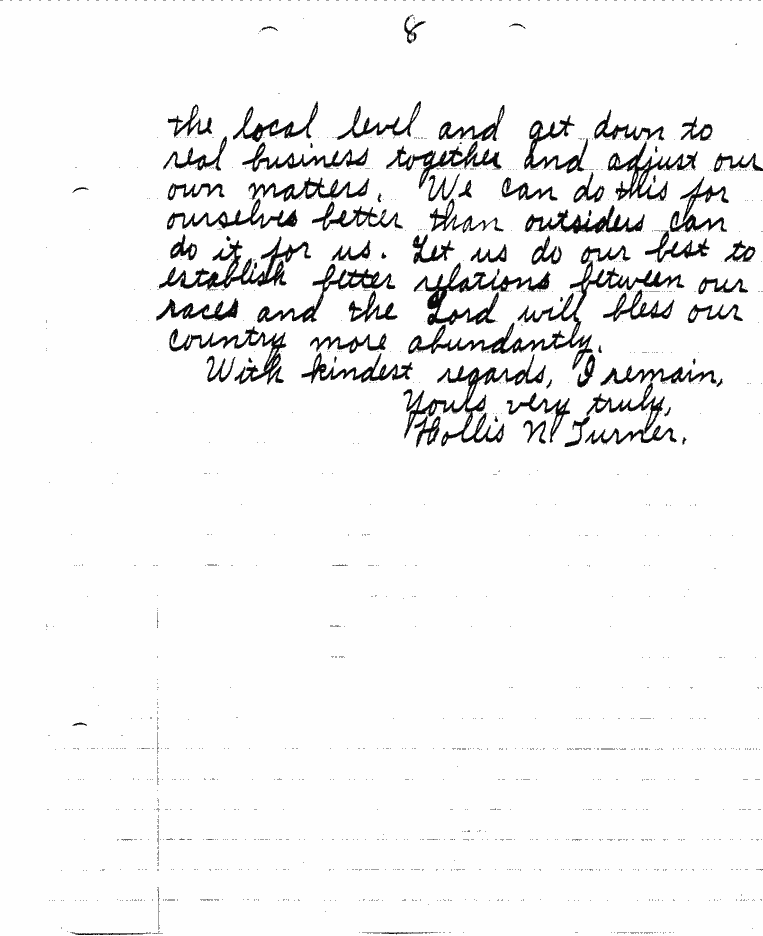 8
the local level and get down to
real business together and adjust our
own matters. We can do this for
ourselves better than outsiders can
do it for us. Let us do our best to
establish better relations between our
races and the Lord will bless our
country more abundantly.
With kindest regards, I remain,
Yours very truly,
Hollis N. Turner.